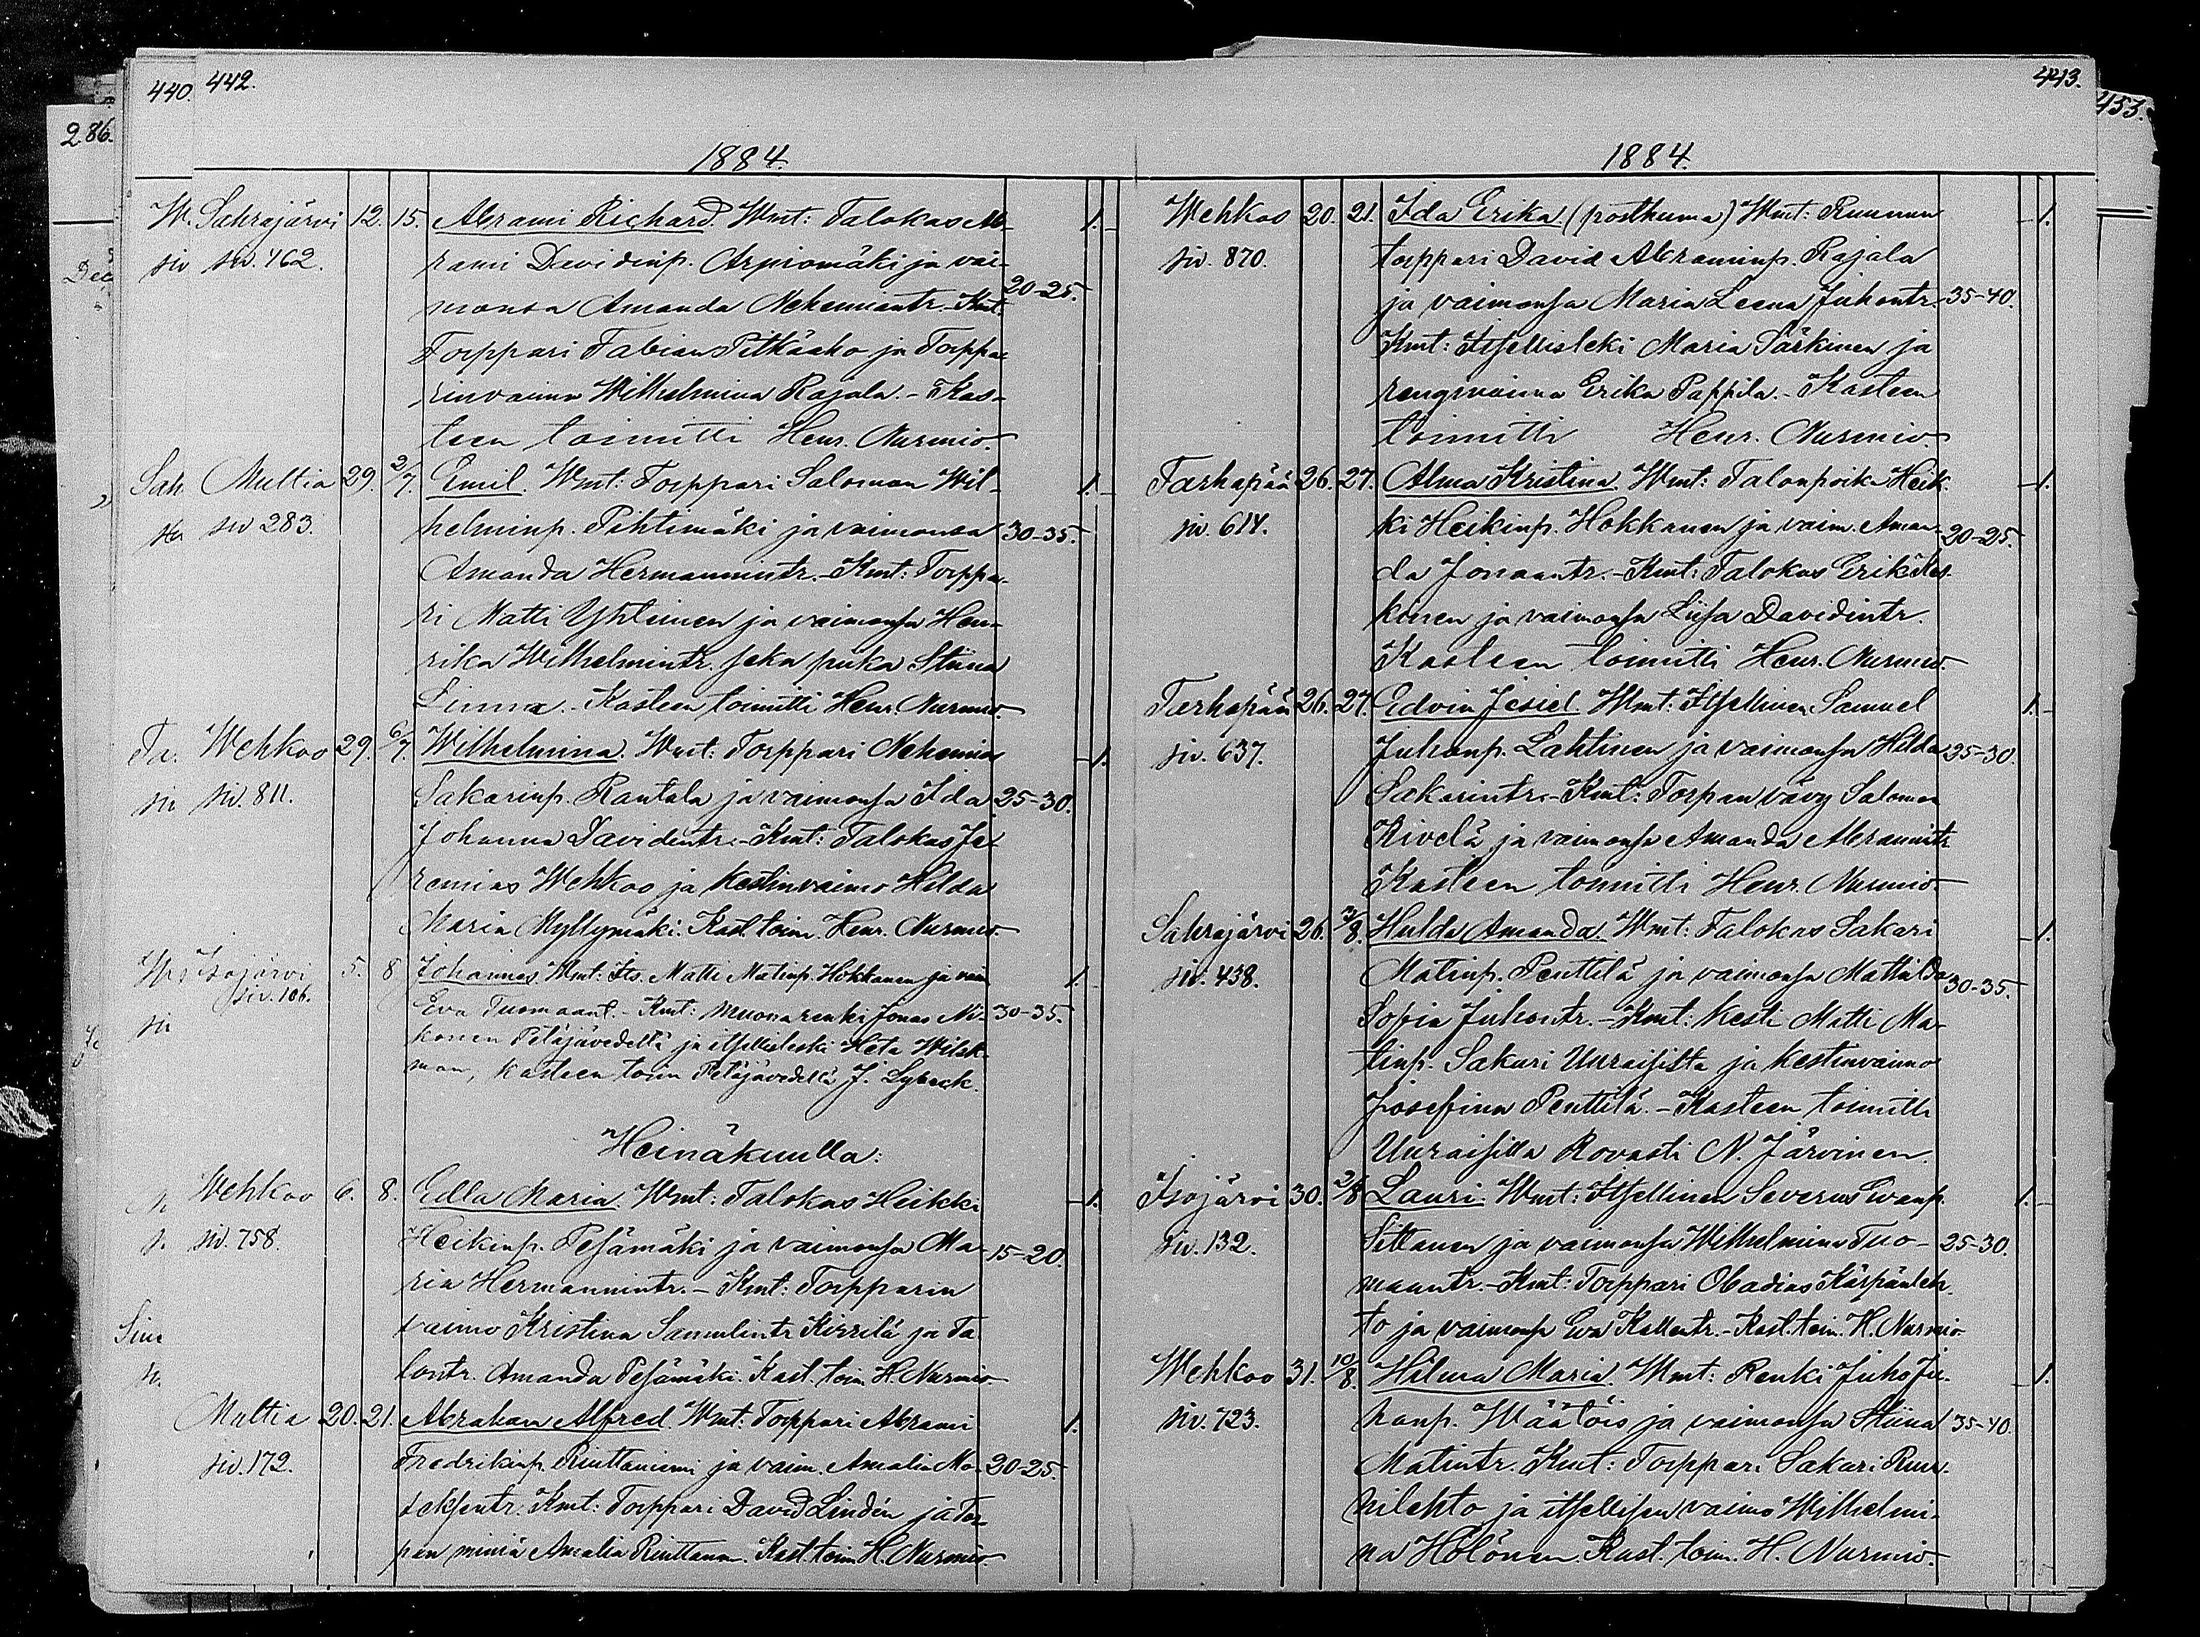 440. 442.
286.
1884.
Sahrajärvi 12. 15. Abrami Richard. Wmt: Talokas Ab-
siv. 462. rami Davidinp. Arpiomäki ja vai-
monsa Amanda Nehemiantr. Kmt: 20-25. 1.
Torppari Fabian Pitkäaho ja Torppa-
rinvaimo Wilhelmina Rajala. - Kas-
teen toimitti Henr. Nurmio.
Multia 29. 2/7. Emil. Wmt: Torppari Salomon Wil- 1.
siv 283. helminp. Pihtimäki ja vaimonsa 30-35.
Amanda Hermannintr. - Kmt: Torppa-
ri Matti Yhtiinen ja vaimonsa Hen-
rika Wilhelmintr. seka piika Stiina
Linna. - Kasteen toimitti Henr. Nurmio.
Wehkoo 29. 6/7. Wilhelmina. Wmt: Torppari Nehemias 1.
siv. 811. Sakarinp. Rantala ja vaimonsa Ida 25-30.
Johanna Davidintr. - Kmt: Talokas Je-
remias Wehkoo ja Kestinvaimo Hilda
Maria Myllymäki. Kast. toim. Henr. Nurmio.
Isojärvi 5. 8 Johannes Wmt: Its. Matti Matinp. Hokkanen ja vaim 1.
siv. 106. Eva Tuomaant. - Kmt: Muonarenki Jonas Ni- 30-35.
konen Petäjävedeltä ja itsellisleski Heta Wilsk-
man, kasteen toim Petäjävedellä J. Lybeck.
Heinäkuulla:
Wehkoo 6. 8. Edla Maria. Wmt: Talokas Heikki 1.
siv. 758. Heikinp. Pesämäki ja vaimonsa Ma- 15-20.
ria Hermannintr. - Kmt: Torpparin
vaimo Kristina Samulintr Kirrilä ja Ta
lontr. Amanda Pesämäki. Kast. toim. H. Nurmio.
Multia 20. 21. Abraham Alfred. Wmt. Torppari Abrami 1.
siv. 172. Fredrikinp. Riuttaniemi ja vaim. Amalia Ma- 20-25.
Kmt: Torppari David Lindén ja Tor-
pan miniä Amalia Kast. toim. H. Nurmio
443.
453.
1884.
Wehkoo 20. 21. Ida Erika. (posthuma) Wmt: Ruunun 1.
siv. 870. torppari David Abraminp. Rajala
ja vaimonsa Maria Leena Juhontr. 35-40.
Kmt: Itsellisleki Maria Särkinen ja
rengivaimo Erika Pappila. - Kasteen
toimitti Henr. Nurmio
Tarhapää 26. 27. Alma Kristina. Wmt: Talonpoika Heik- 1.
siv. 614. ki Heikinp. Hokkanen ja vaim. Aman- 20-25.
da Jonaantr. - Kmt: Talokas Erik Kes-
kinen ja vaimonsa Liisa Davidintr.
Kasteen toimitti Henr. Nurmio.
Tarhapää 26. 27. Edvin Jesiel. Wmt: Itsellinen Samuel 1.
siv. 637. Juhonp. Lahtinen ja vaimonsa Hilda 25-30.
Sakarintr. - Kmt: Torpan vävy Salomon
Kivelä ja vaimonsa Amanda Abramintr
Kasteen toimitti Henr. Nurmio.
Sahrajärvi 26. 3/8. Hulda Amanda. Wmt: Talokas Sakari 1.
siv. 438. Matinp. Penttilä ja vaimonsa Mathilda 30-35.
Sofia Juhontr. - Kmt: Kesti Matti Ma-
tinp. Sakari Uuraisista ja Kestinvaimo
Josefina Penttilä. - Kasteen toimitti
Uuraisilla Rovasti N. Järvinen.
Isojärvi 30. 3/8 Lauri. Wmt: Itsellinen Severus Evanp. 1.
siv. 132. Siltanen ja vaimonsa Wilhelmina Tuo- 25-30.
maantr. - Kmt: Torppari Obadias Kärpänleh-
to ja vaimonsa Eva Kallentr. - Kast. toim. H. Nurmio
Wehkoo 31. 10/8. Hilma Maria. Wmt: Renki Juho Ju- 1.
siv. 723. honp. Wäätöis ja vaimonsa Stiina 35-40.
Matintr. Kmt: Torppari Sakari Ruu-
nilehto ja itsellisen vaimo Wilhelmi-
na Hölönen. Kast. toim. H. Nurmio.